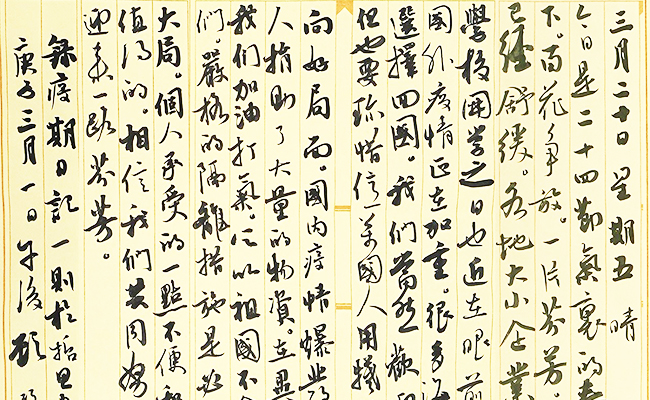 三月二十日 星期五 晴
今日是二十四節氣裏的春
下。百花爭放。一片芬芳。
已經舒緩。各地大小企業
學校開學之日也近在眼前
國外疫情正在加重。很多海
選擇回國。我們當然歡迎
但也要珍惜這一萬國人用犧
向好局面。國內疫情爆發
人捐助了大量的物資。在
我們加油打氣。所以祖國不會
們。嚴格的隔離措施是必
大局。個人承受的一點不便和
值得的。相信我們共同努
迎來一路芬芳。
疫期日記一則於
庚子三月一日午後